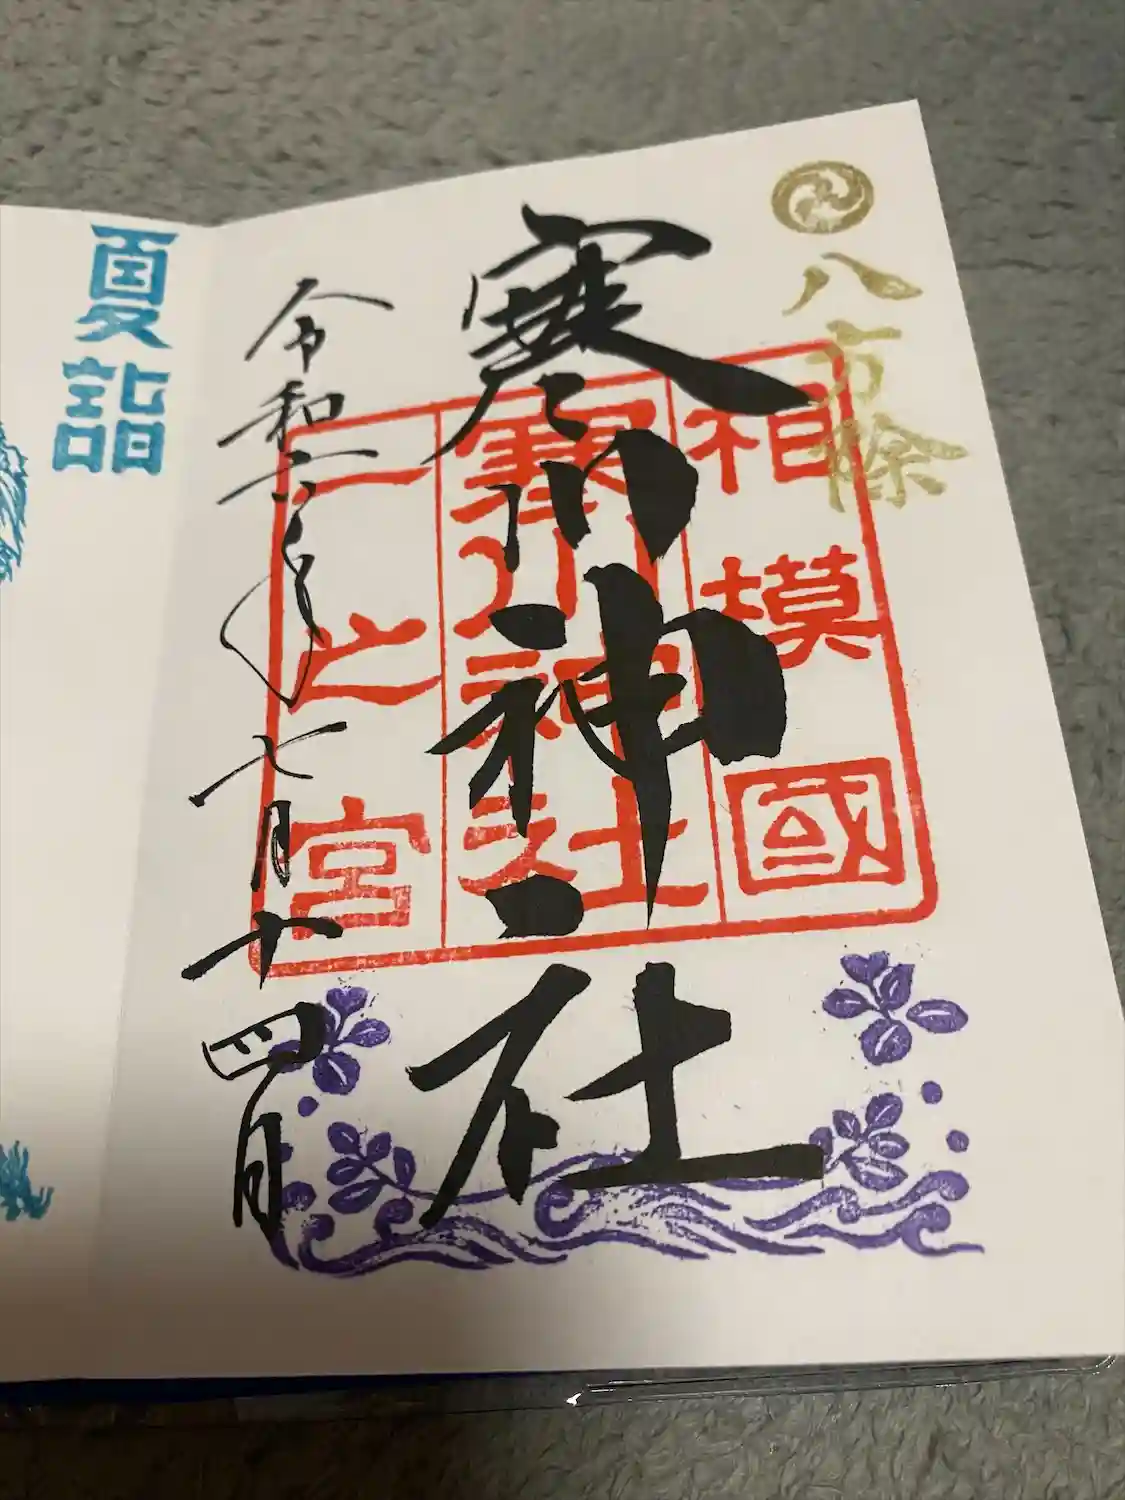 八方除
相模國
寒川神社
一之宮
寒川神社
令和六年七月十四日
夏詣